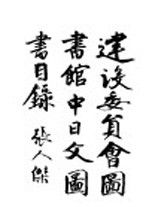 建設委員會圖
書館中日文圖
書目錄
張人傑